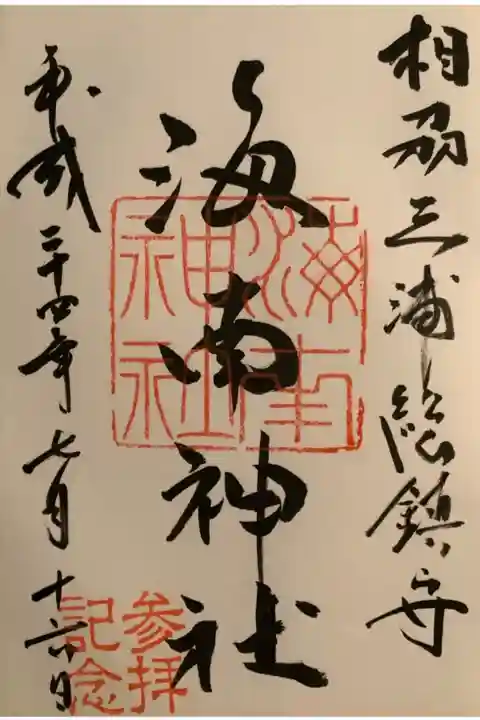 相刕三浦総鎮守
海南神社
海南神社
平成二十四年七月十六日
参拝記念